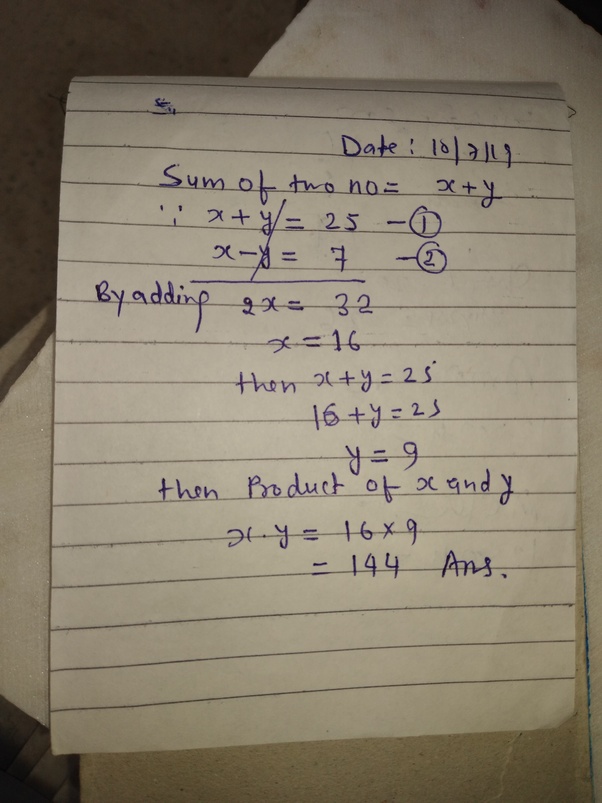 Date: 10/7/19
Sum of two no = x+y
∵ x+y = 25 -①
x-y = 7 -②
By adding 2x = 32
x = 16
then x+y = 25
16+y = 25
y = 9
then Product of x and y
x.y = 16×9
= 144 Ans.